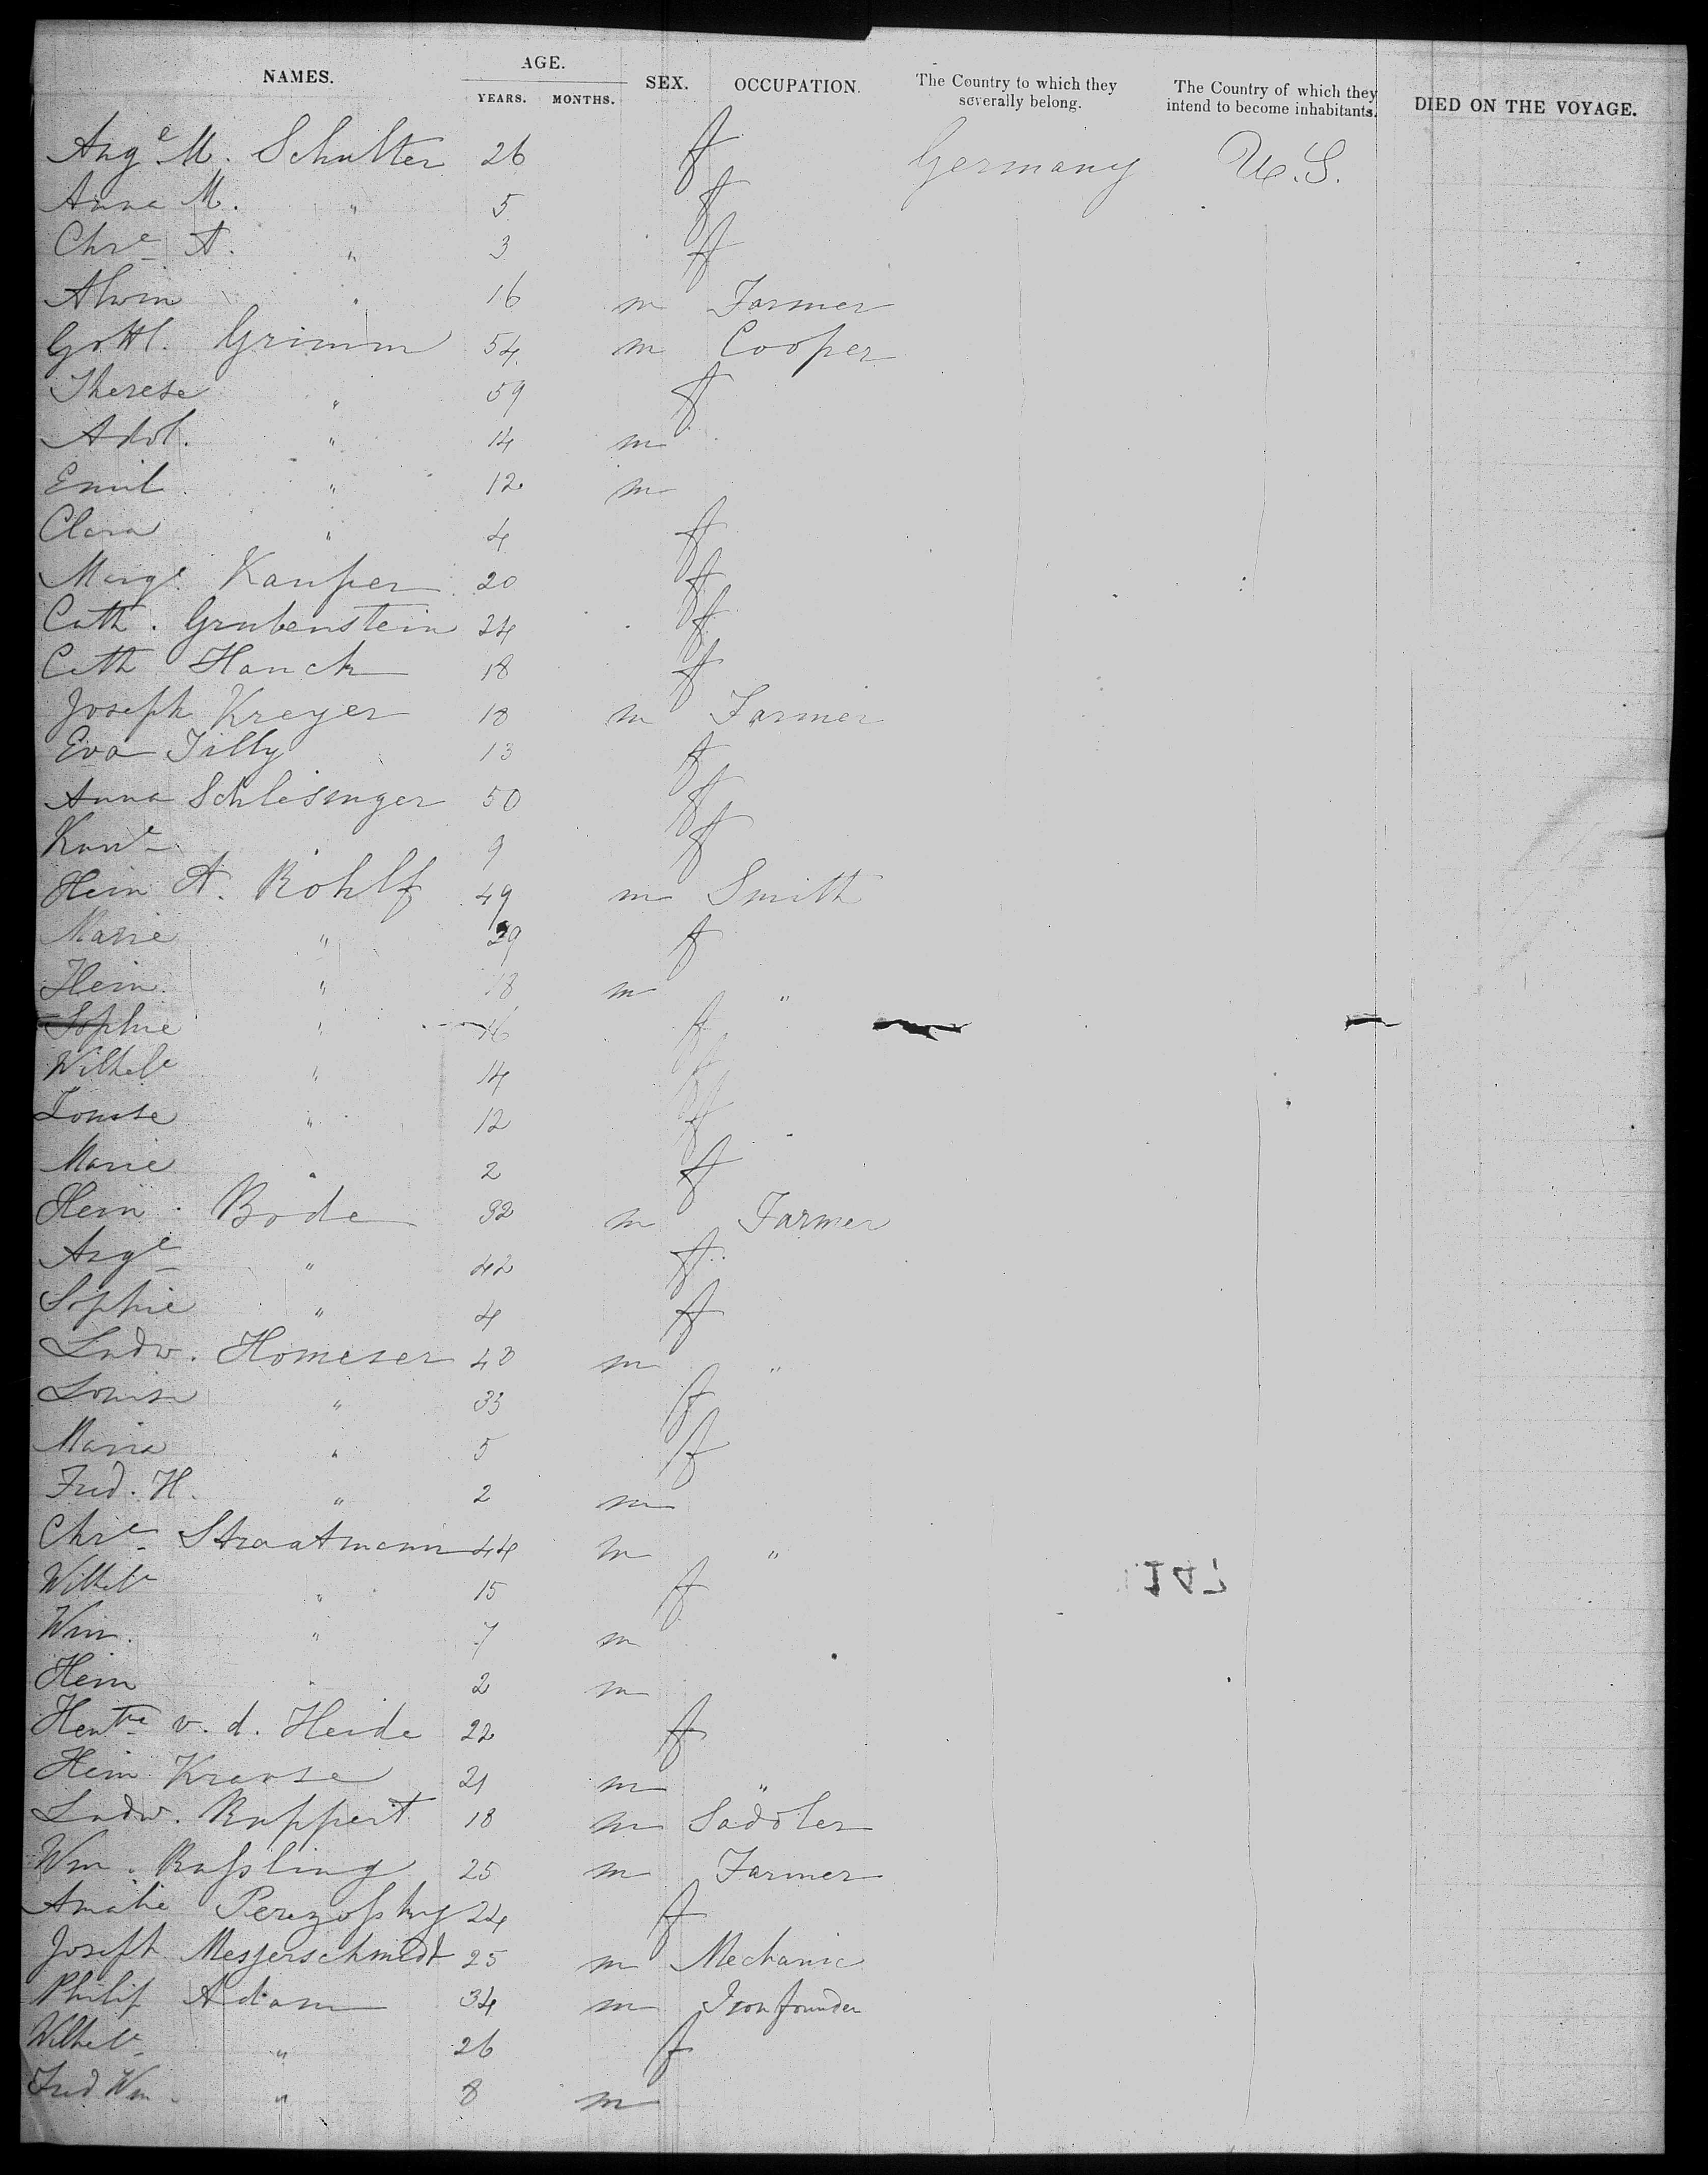 NAMES. AGE. YEARS. MONTHS. SEX. OCCUPATION. The Country to which they severally belong. The Country of which they intend to become inhabitants. DIED ON THE VOYAGE.
Auge M. Schulter 26 f Germany U.S.
Anna M. " 5 f
Chre A. " 3 f
Alwin " 16 m Farmer
Gottl. Grimm 54 m Cooper
Therese " 59 f
Adol. " 14 m
Emil " 12 m
Clara " 4 f
Marge Kamper 20 f
Cath. Grubenstein 24 f
Cath Hauck 18 f
Joseph Kreyer 18 m Farmer
Eva Tilly 13 f
Anna Schlesinger 50 f
" 9 f
Hein A. Rohlf 49 m Smith
Marie " 39 f
Hein. " 18 m "
Sophie " 16 f
Wilhele " 14 f
Louise " 12 f
Marie " 2 f
Hein. Bode 32 m Farmer
Auge " 42 f
Sophie " 4 f
Ludw. Homeser 48 m "
Louise " 33 f
Maria " 5 f
Fred. H. " 2 m
Chre Straatmann 44 m "
Wilhele " 15 f
Wm. " 7 m
Hein " 2 m
Hentte v. d. Heide 22 f
Hein Krause 21 m "
Ludw. Ruppert 18 m Saddler
Wm. Russling 25 m Farmer
Amalie 24 f
Joseph Messerschmidt 25 m Mechanic
Philip Adam 34 m Iron founder
Wilhele " 26 f
Fred Wm. " 8 m
147